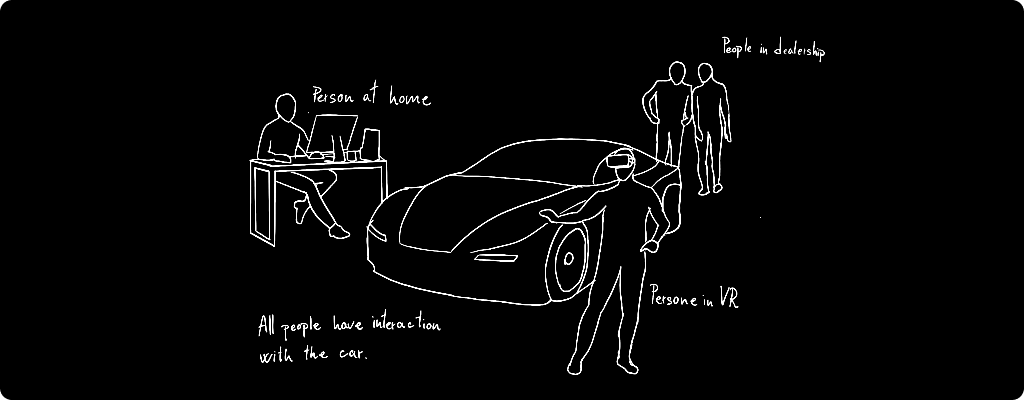 People in dealership
Person at home
Persone in VR
All people have interaction
with the car.